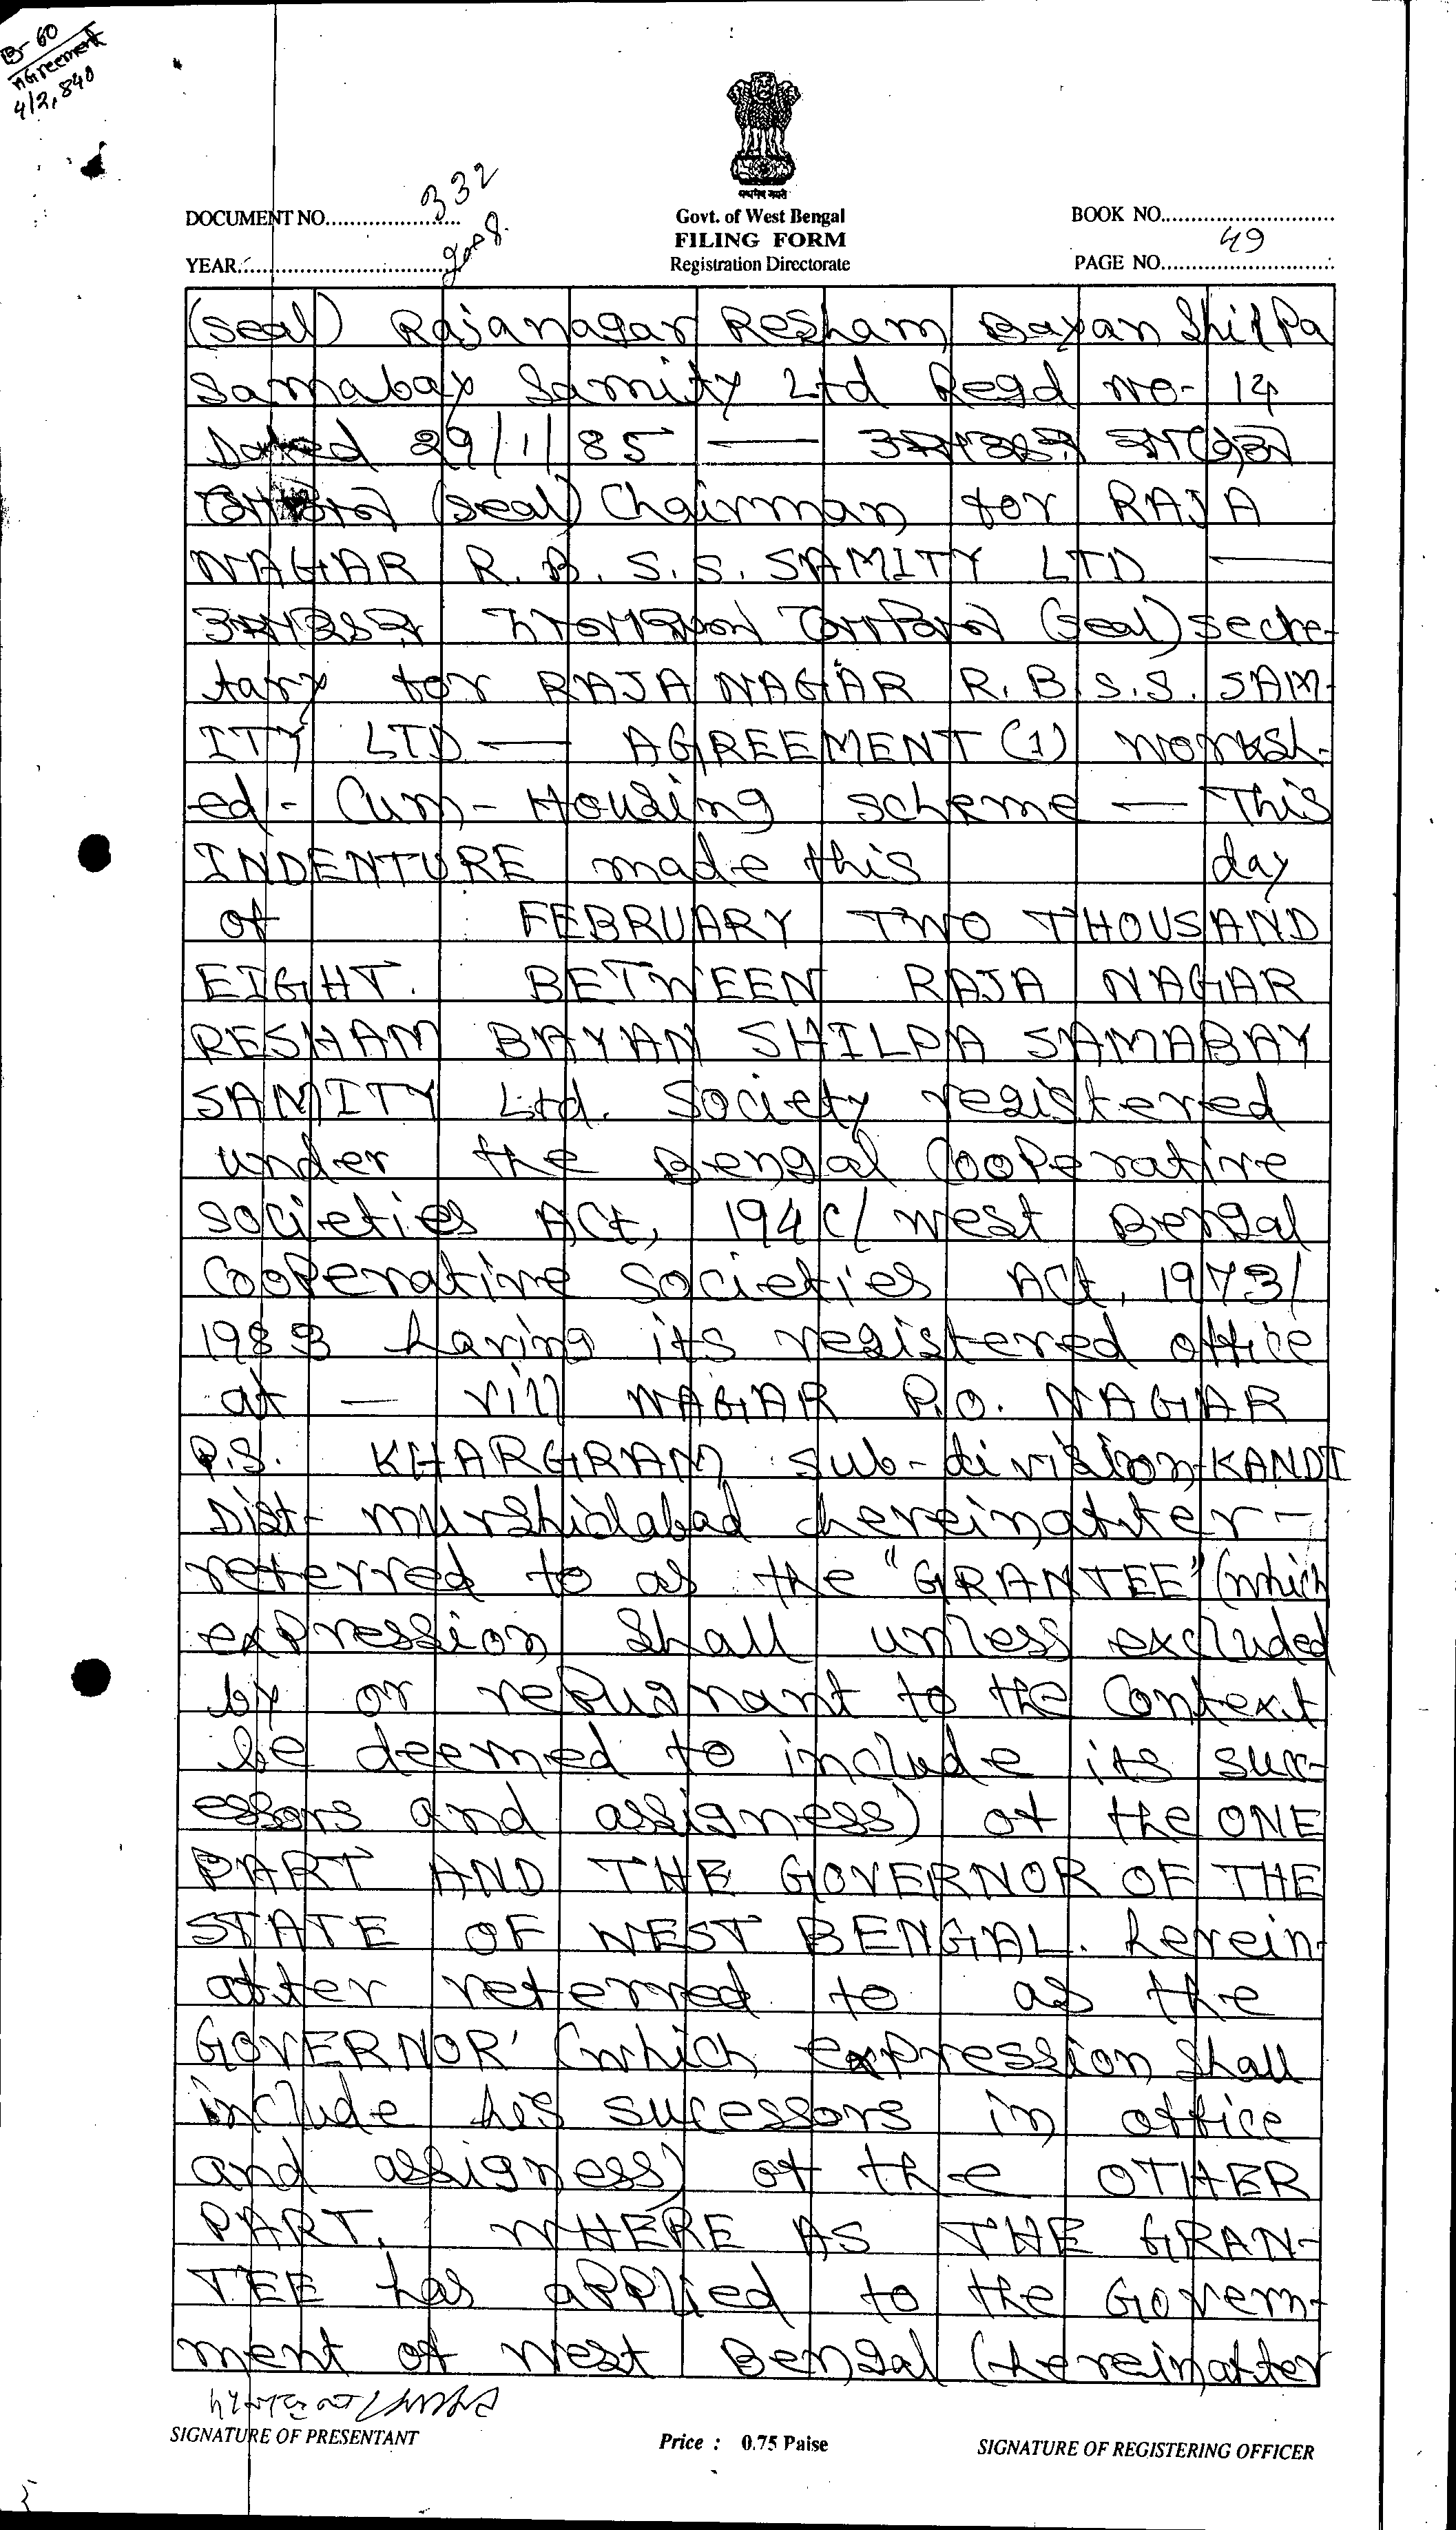 B-60
Agreement
4/2,840
DOCUMENT NO. 332
YEAR. 2008.
Govt. of West Bengal
FILING FORM
Registration Directorate
BOOK NO.
PAGE NO. 49
(seal) Rajanagar Resham Bayan Shilpa
Samabay Samity Ltd Regd no- 14
Dated 29/1/85 —
(seal) Chairman for RAJA
NAGAR R. B. S. S. SAMITY LTD —
(seal) secre-
tary for RAJA NAGAR R. B. S. S. SAM-
ITY LTD — AGREEMENT (1) worksh-
ed - Cum - Housing scheme — This
INDENTURE made this day
of FEBRUARY TWO THOUSAND
EIGHT. BETWEEN RAJA NAGAR
RESHAM BAYAN SHILPA SAMABAY
SAMITY Ltd. Society registered
under the Bengal Cooperative
societies Act, 194c/ west Bengal
Cooperative Societies Act, 1973/
1983 having its registered office
at — vill NAGAR P.O. NAGAR
P.S. KHARGRAM sub-division-KANDI
Dist- murshidabad hereinafter -
referred to as the "GRANTEE" (which
expression shall unless excluded
by or repugnant to the Context
be deemed to include its succ-
essors and assigness) of the ONE
PART AND THE GOVERNOR OF THE
STATE OF WEST BENGAL. herein-
after referred to as the
GOVERNOR' (which expression shall
include his sucessors in office
and assigness) of the OTHER
PART. WHERE AS THE GRAN-
TEE has applied to the Govern-
ment of West Bengal (hereinafter
SIGNATURE OF PRESENTANT
Price : 0.75 Paise
SIGNATURE OF REGISTERING OFFICER